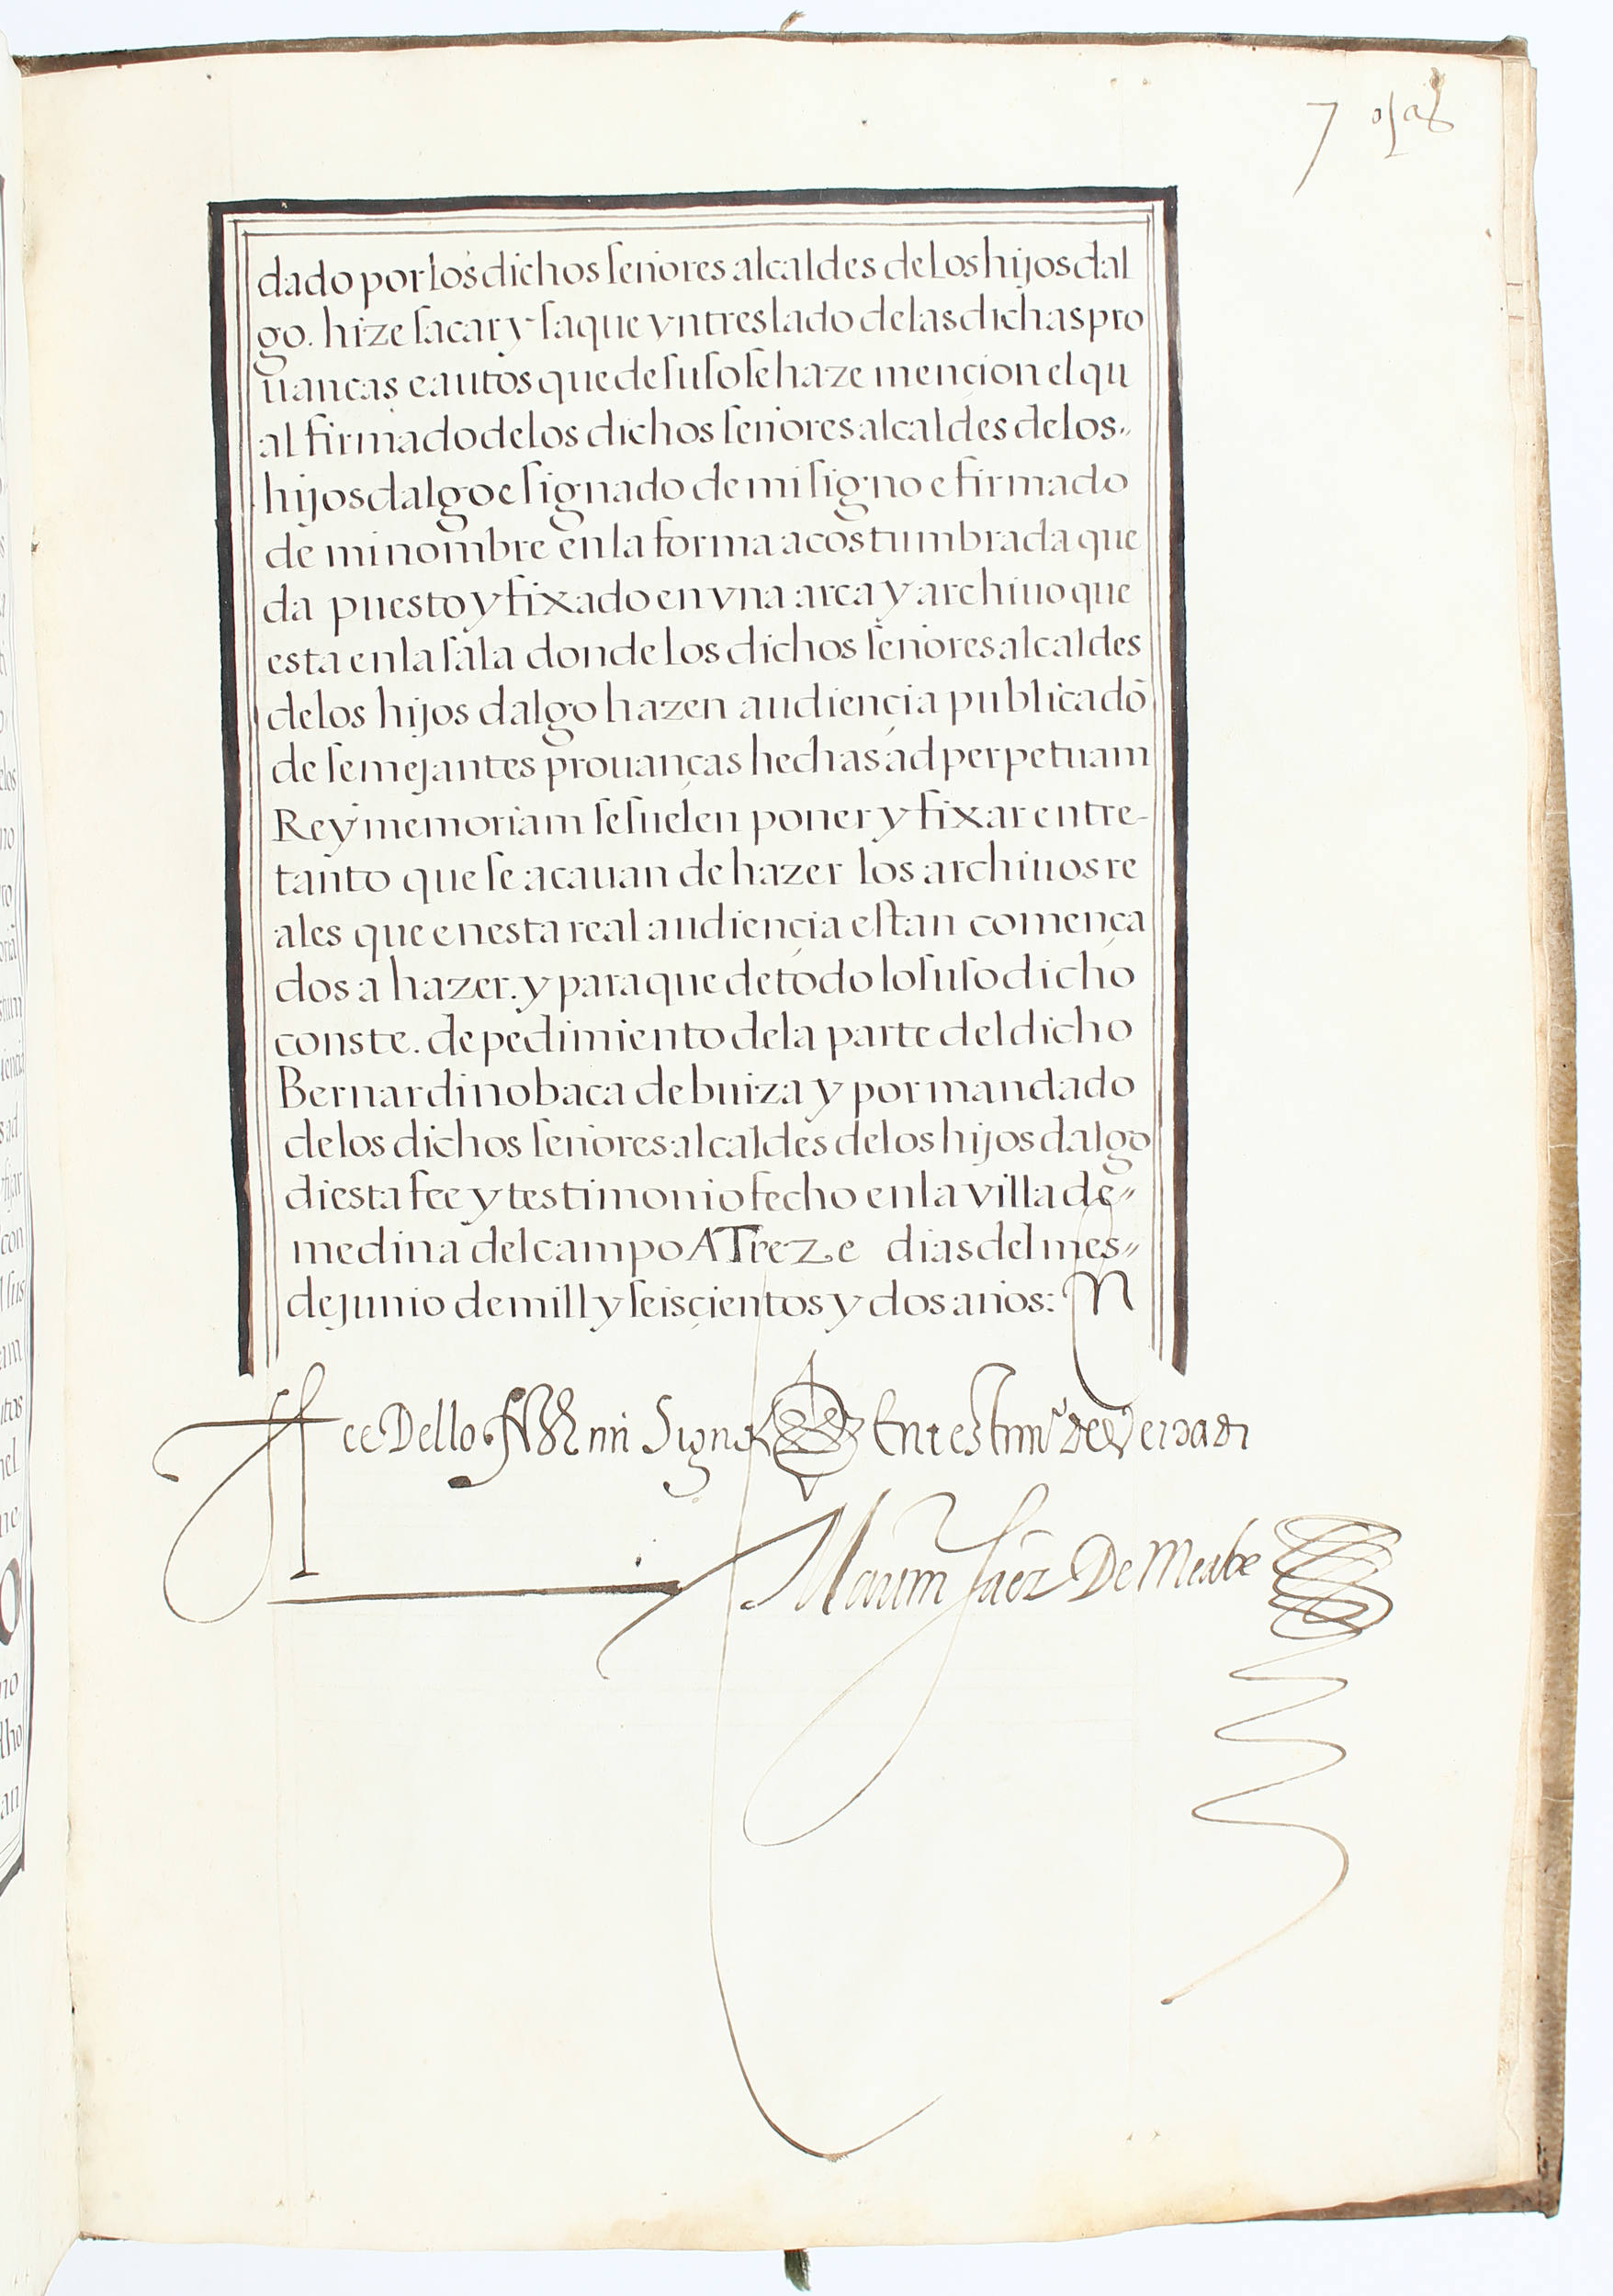 7 ojas
dado por los dichos señores alcaldes de los hijos dal
go. hize sacar y saque vn treslado de las dichas pro
uanças e autos que de suso se haze mençion el qu
al firmado de los dichos señores alcaldes de los
hijos dalgo e signado de mi signo e firmado
de mi nombre en la forma acostumbrada que
da puesto y fixado en vna arca y archiuo que
esta en la sala donde los dichos señores alcaldes
de los hijos dalgo hazen audiençia publica dō
de semejantes prouanças hechas ad perpetuam
Rey memoriam se suelen poner y fixar entre-
tanto que se acauan de hazer los archiuos re
ales que en esta real audiençia estan comença
dos a hazer. y para que de todo lo suso dicho
conste. de pedimiento de la parte del dicho
Bernardino baca de buiza y por mandado
de los dichos señores alcaldes de los hijos dalgo
di esta fee y testimonio fecho en la villa de
medina del campo A Treze dias del mes
de junio de mill y seisçientos y dos años:
ce Dello mi Signo En testimº de verdad
Martin saēz De Meabe